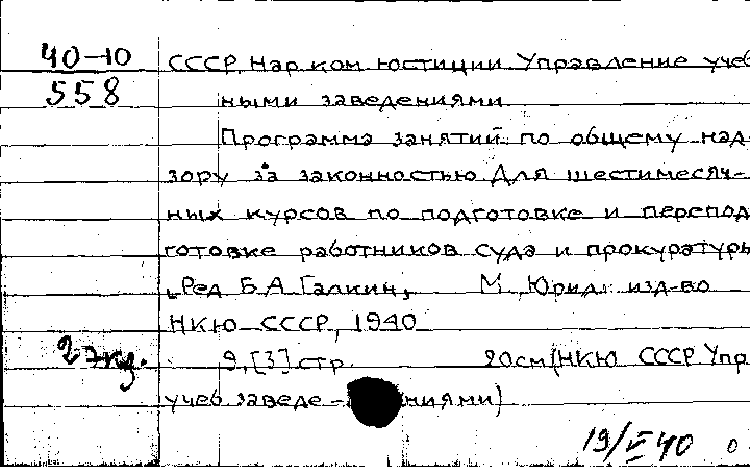 40-10
558
СССР. Нар ком юстиции Управление учеб
ными заведениями
Программа занятий по общему над
зору за законностью Для шестимесяч-
ных курсов по подготовке и перепод
готовке работников суда и прокуратуры
Ред Б. А Галкин, М. Юрид. изд-во
НКЮ СССР, 1940
2 экз. 9, [3] стр. 20см (НКЮ СССР. Упр
учеб. заведе - ниями)
19/VI 40